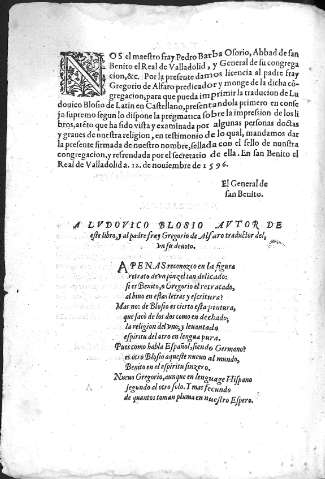 NOS el maestro fray Pedro Barba Osorio, Abbad de san
Benito el Real de Valladolid, y General de su congrega
cion, &c. Por la presente damos licencia al padre fray
Gregorio de Alfaro predicador y monge de la dicha cõ
gregacion, para que pueda imprimir la traducion de Lu
douico Blosio de Latin en Castellano, presentandola primero en conse
jo supremo segun lo dispone la pregmatica sobre la impresion de los li
bros, atẽto que ha sido vista y examinada por algunas personas doctas
y graues de nuestra religion, en testimonio de lo qual, mandamos dar
la presente firmada de nuestro nombre, sellada con el sello de nuestra
congregacion, y refrendada por el secretario de ella. En san Benito el
Real de Valladolid a. 12. de nouiembre de 1596.
El General de
san Benito.
A LVDOVICO BLOSIO AVTOR DE
este libro, y al padre fray Gregorio de Alfaro traductor del,
vn su deuoto.
APENAS reconozco en la figura
retrato de vn pinzel tan delicado:
si es Benito, o Gregorio el retratado,
al biuo en estas letras y escritura?
Mas no: de Blosio es cierto esta pintura,
que sacò de los dos como en dechado,
la religion del vno, y leuantado
espiritu del otro en lengua pura.
Pues como habla Español, siendo Germano?
es otro Blosio aqueste nueuo al mundo,
Benito en el espiritu sinzero.
Nueuo Gregorio, aunque en lenguage Hispano
segundo el otro solo. Y mas fecundo
de quantos toman pluma en nuestro Espero.